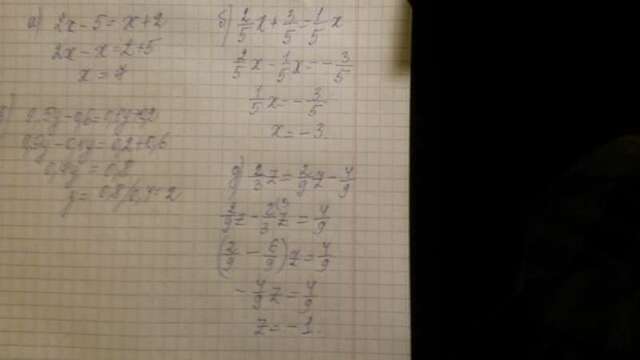 а) 2x - 5 = x + 2
2x - x = 2 + 5
x = 7
б) 2/5 x + 3/5 = 1/5 x
2/5 x - 1/5 x = - 3/5
1/5 x = - 3/5
x = -3
0,2 + 0,6
= 0,8
y = 0,8/0,4 = 2
д) 2/3 z = 2/9 z - 4/9
2/9 z - 2/3 z = 4/9
(2/9 - 6/9) z = 4/9
- 4/9 z = 4/9
z = -1